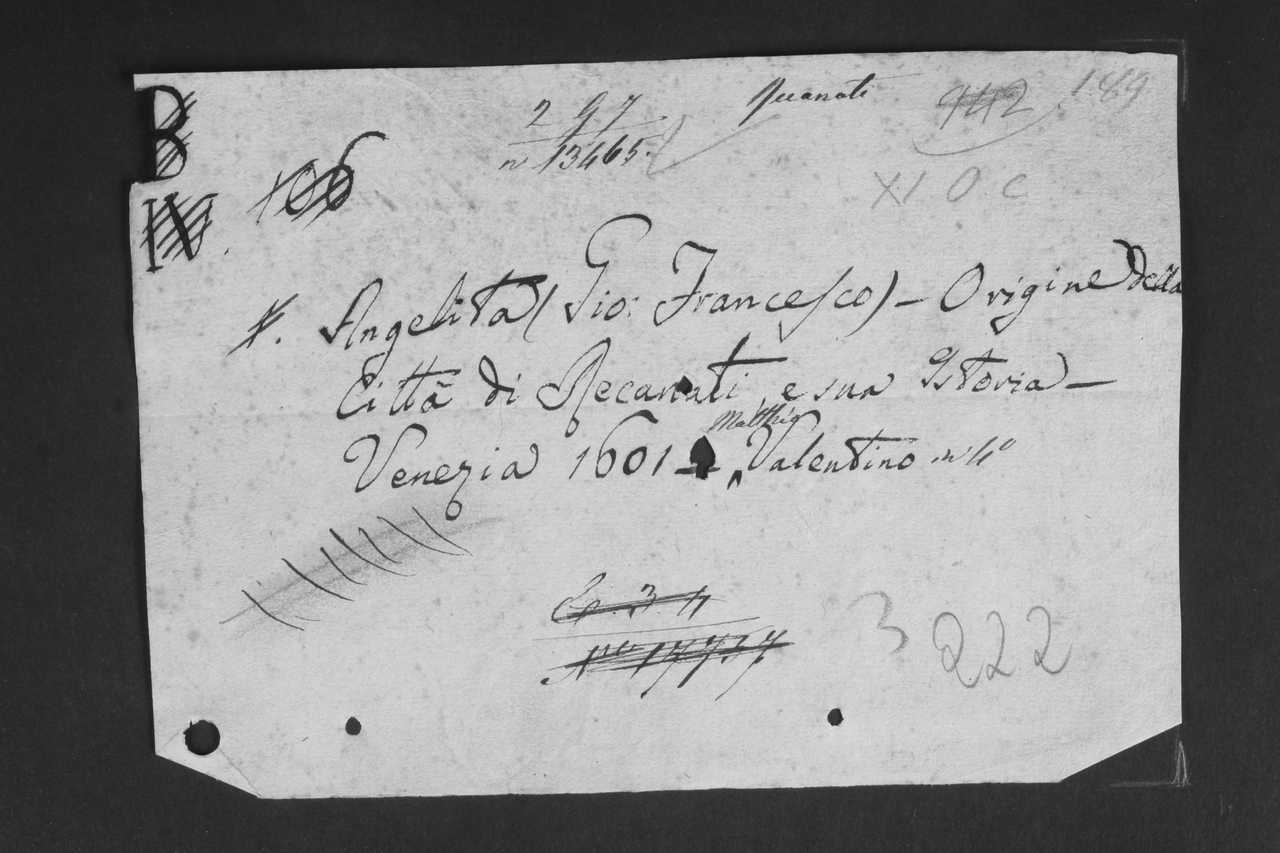 B
IV. 106
2 9 7
n 13465.
942 189
XI O C
Angelita (Gio: Francesco) – Origine della
Città di Recanati e sua Istoria –
Matthio
Venezia 1601 – ‸ Valentino in 4°
3 222